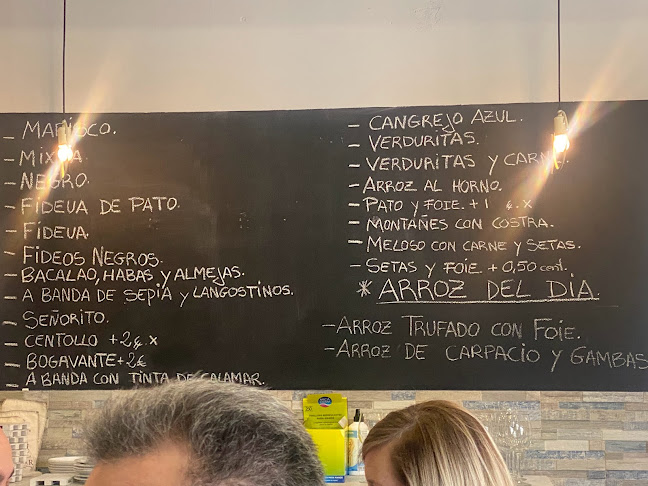 - MARISCO.
- MIXTA.
- NEGRO.
- FIDEUA DE PATO.
- FIDEUA.
- FIDEOS NEGROS.
- BACALAO, HABAS Y ALMEJAS.
- A BANDA DE SEPIA Y LANGOSTINOS.
- SEÑORITO.
- CENTOLLO +2€ x
- BOGAVANTE +2€
- A BANDA CON TINTA DE CALAMAR.
- CANGREJO AZUL.
- VERDURITAS.
- VERDURITAS Y CARNE.
- ARROZ AL HORNO.
- PATO Y FOIE. +1 €. x
- MONTAÑES CON COSTRA.
- MELOSO CON CARNE Y SETAS.
- SETAS Y FOIE +0,50 cent.
* ARROZ DEL DIA.
- ARROZ TRUFADO CON FOIE.
- ARROZ DE CARPACIO Y GAMBAS